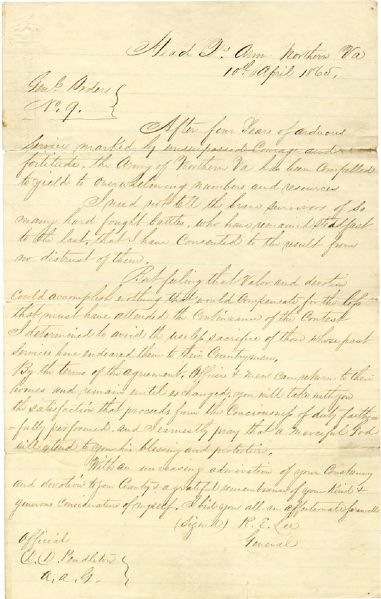 Head Qrs Army Northern Va
10th April 1865.
Genl Orders
No. 9.
After four Years of arduous
Service marked by unsurpassed Courage and
fortitude, the Army of Northern Va has been Compelled
to yield to overwhelming numbers and resources
I need not tell the brave survivors of so
many hard fought battles, who have remained steadfast
to the last, that I have Consented to the result from
no distrust of them.
But feeling that Valor and devotion
Could accomplish nothing that would Compensate for the loss
that must have attended the Continuance of the Contest
I determined to avoid the useless sacrifice of those whose past
Services have endeared them to their Countrymen.
By the terms of the agreement, Officers & men can return to their
homes and remain until exchanged, you will take with you
the satisfaction that proceeds from the Consciousness of duty faith-
-fully performed, and I earnestly pray that a merciful God
will extend to you his blessing and protection.
With an unceasing admiration of your Constancy
and devotion to your Country & a grateful remembrance of your kind &
generous Consideration of myself. I bid you all an affectionate farewell
(signed) R. E. Lee
General
Official
Pendleton
A. A. G.